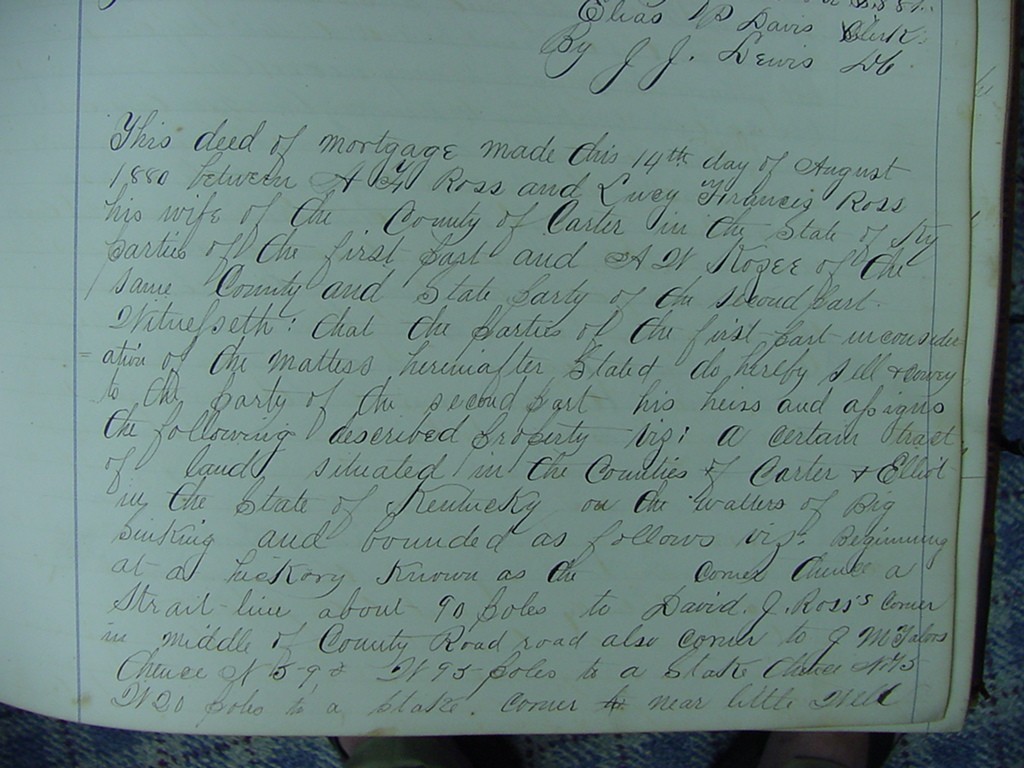 Elias P Davis Clerk
By J J. Lewis Dc.
This deed of mortgage made this 14th day of August
1880 between A F Ross and Lucy Francis Ross
his wife of the County of Carter in the State of Ky
parties of the first part and A W Kozee of the
same County and State party of the second part.
Witnesseth: that the parties of the first part in consider
ation of the matters hereinafter stated do hereby sell & convey
to the party of the second part his heirs and assigns
the following described property viz: a certain tract
of land situated in the Counties of Carter & Elliot
in the State of Kentucky on the watters of Big
Sinking and bounded as follows viz. Beginning
at a hickory known as the corner thence a
strait line about 90 poles to David J. Ross's corner
in middle of County Road road also corner to J M
thence N W 95 poles to a stake thence N 75
W 20 poles to a stake. corner near little Well